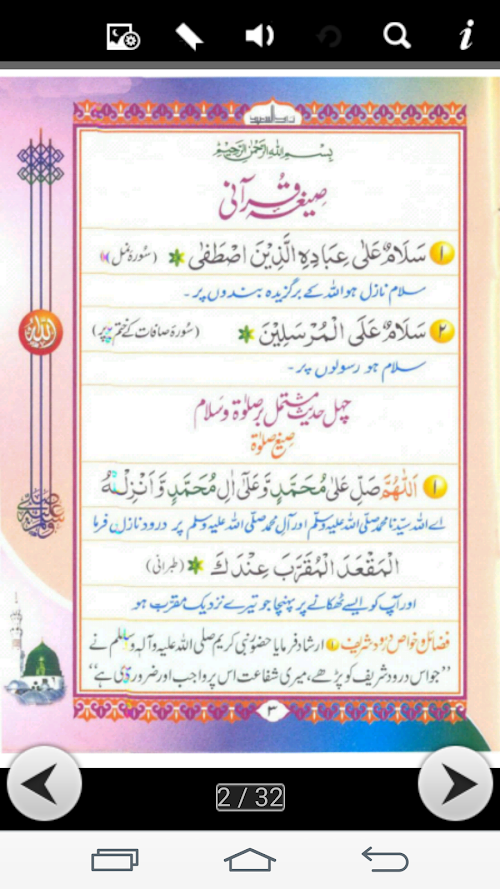 بِسْمِ اللهِ الرَّحْمٰنِ الرَّحِيْمِ
صیغہ قرآنی
۱ سَلَامٌ عَلٰی عِبَادِهِ الَّذِيْنَ اصْطَفٰی (سُورۂ نمل)
سلام نازل ہو اللہ کے برگزیدہ بندوں پر۔
۲ سَلَامٌ عَلَی الْمُرْسَلِيْنَ (سُورۂ صافات کے ختم پر)
سلام ہو رسولوں پر۔
چہل حدیث مشتمل بر صلوٰۃ و سلام
صیغ صلوٰۃ
۱ اَللّٰهُمَّ صَلِّ عَلٰی مُحَمَّدٍ وَّعَلٰٓی اٰلِ مُحَمَّدٍ وَّاَنْزِلْهُ
اے اللہ سیّدنا محمد صلی اللہ علیہ وسلم اور آلِ محمد صلی اللہ علیہ وسلم پر درود نازل فرما
الْمَقْعَدَ الْمُقَرَّبَ عِنْدَكَ (طبرانی)
اور آپ کو ایسے ٹھکانے پر پہنچا جو تیرے نزدیک مقرّب ہو
فضائل و خواص درود شریف ۱ ارشاد فرمایا حضور نبی کریم صلی اللہ علیہ وآلہ وسلم نے
”جو اس درود شریف کو پڑھے، میری شفاعت اس پر واجب اور ضروری ہے“
۳
2 / 32